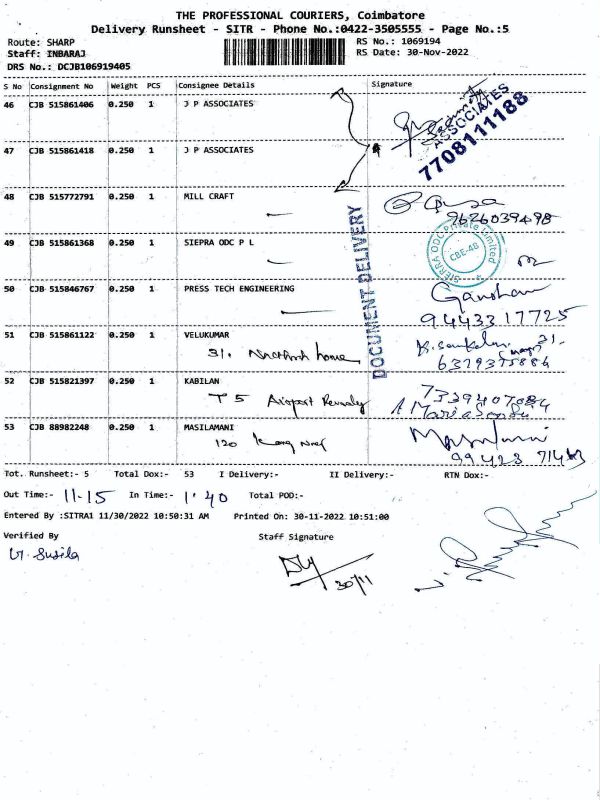 THE PROFESSIONAL COURIERS, Coimbatore
Delivery Runsheet - SITR - Phone No.:0422-3505555 - Page No.:5
Route: SHARP RS No.: 1069194
Staff: INBARAJ RS Date: 30-Nov-2022
DRS No.: DCJB106919405
S No Consignment No Weight PCS Consignee Details Signature
46 CJB 515861406 0.250 1 J P ASSOCIATES
ASSOCIATES
7708111188
47 CJB 515861418 0.250 1 J P ASSOCIATES
48 CJB 515772791 0.250 1 MILL CRAFT
9626039498
DOCUMENT DELIVERY
49 CJB 515861368 0.250 1 SIEPRA ODC P L
SIERRA ODC Private Limited
CBE-48
50 CJB 515846767 0.250 1 PRESS TECH ENGINEERING
9443317725
51 CJB 515861122 0.250 1 VELUKUMAR
31. home
6379375884
52 CJB 515821397 0.250 1 KABILAN
T 5 Airport
7339407084
53 CJB 88982248 0.250 1 MASILAMANI
120
99423 71463
Tot. Runsheet:- 5 Total Dox:- 53 I Delivery:- II Delivery:- RTN Dox:-
Out Time:- 11-15 In Time:- 1.40 Total POD:-
Entered By :SITRA1 11/30/2022 10:50:31 AM Printed On: 30-11-2022 10:51:00
Verified By Staff Signature
Susila
30/11